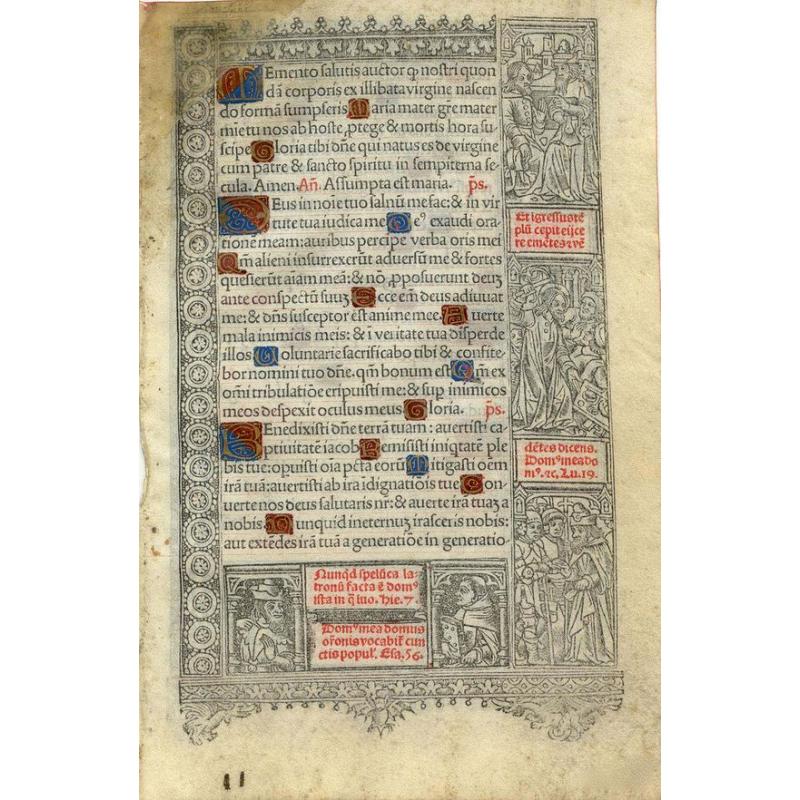 Memento salutis auctor ꝙ nostri quon
dā corporis ex illibata virgine nascen
do formā sumpseris Maria mater gr̄e mater
mie tu nos ab hoste ꝓtege & mortis hora su-
scipe Gloria tibi dn̄e qui natus es de virgine
cum patre & sancto spiritu in sempiterna se-
cula. Amen. Añ. Assumpta est maria. p̄s.
Deus in noie tuo salnū me fac: & in vir
tute tua iudica me Deꝰ exaudi ora-
tionē meam: auribus percipe verba oris mei
Qm̄ alieni insurrexerūt aduersū me & fortes
quesierūt aīam meā: & nō ꝓposuerunt deuꝫ
ante conspectū suuꝫ Ecce em̄ deus adiuuat
me: & dn̄s susceptor est anime mee. Auerte
mala inimicis meis: & ī veritate tua disperde
illos. Voluntarie sacrificabo tibi & confite-
bor nomini tuo dn̄e. qm̄ bonum est Qm̄ ex
om̄i tribulatiōe eripuisti me: & sup inimicos
meos despexit oculus meus Gloria. p̄s.
Benedixisti dn̄e terrā tuam: auertisti ca
ptiuitatē iacob Remisisti iniqtatē ple
bis tue: opuisti oīa pctā eorū Mitigasti oēm
irā tuā: auertisti ab ira īdignatiōis tue Con-
uerte nos deus salutaris nr̄: & auerte irā tuaꝫ a
nobis. Nunquid ineternuꝫ irasceris nobis:
aut extēdes irā tuā a generatiōe in generatio-
Et īgressus tē
plū cepit eijce
re emētes ⁊ vē
dētes dicens.
Domꝰ mea do
mꝰ. ⁊c. Lu. 19.
Nunqd spelūca la-
tronū facta ē domꝰ
ista in q̄ īuo. Hie. 7.
Domꝰ mea domus
orōnis vocabit̄ cun
ctis popul'. Esa. 56.